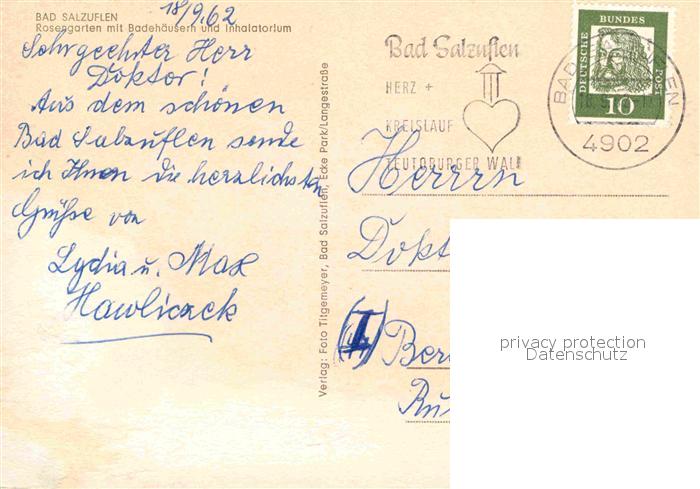 BAD SALZUFLEN
Rosengarten mit Badehäusern und Inhalatorium
18/9.62
Sehrgeehrter Herr
Doktor!
Aus dem schönen
Bad Salzuflen sende
ich Ihnen die herzlichsten
Grüße von
Lydia u. Max
Hawliczek
Verlag: Foto Titgemeyer, Bad Salzuflen, Ecke Park/Langestraße
Bad Salzuflen
HERZ +
KREISLAUF
TEUTOBURGER WALD
DEUTSCHE BUNDESPOST
10
BAD SALZUFLEN
4902
Herrrn
Dokt
Ber
Ru
privacy protection
Datenschutz